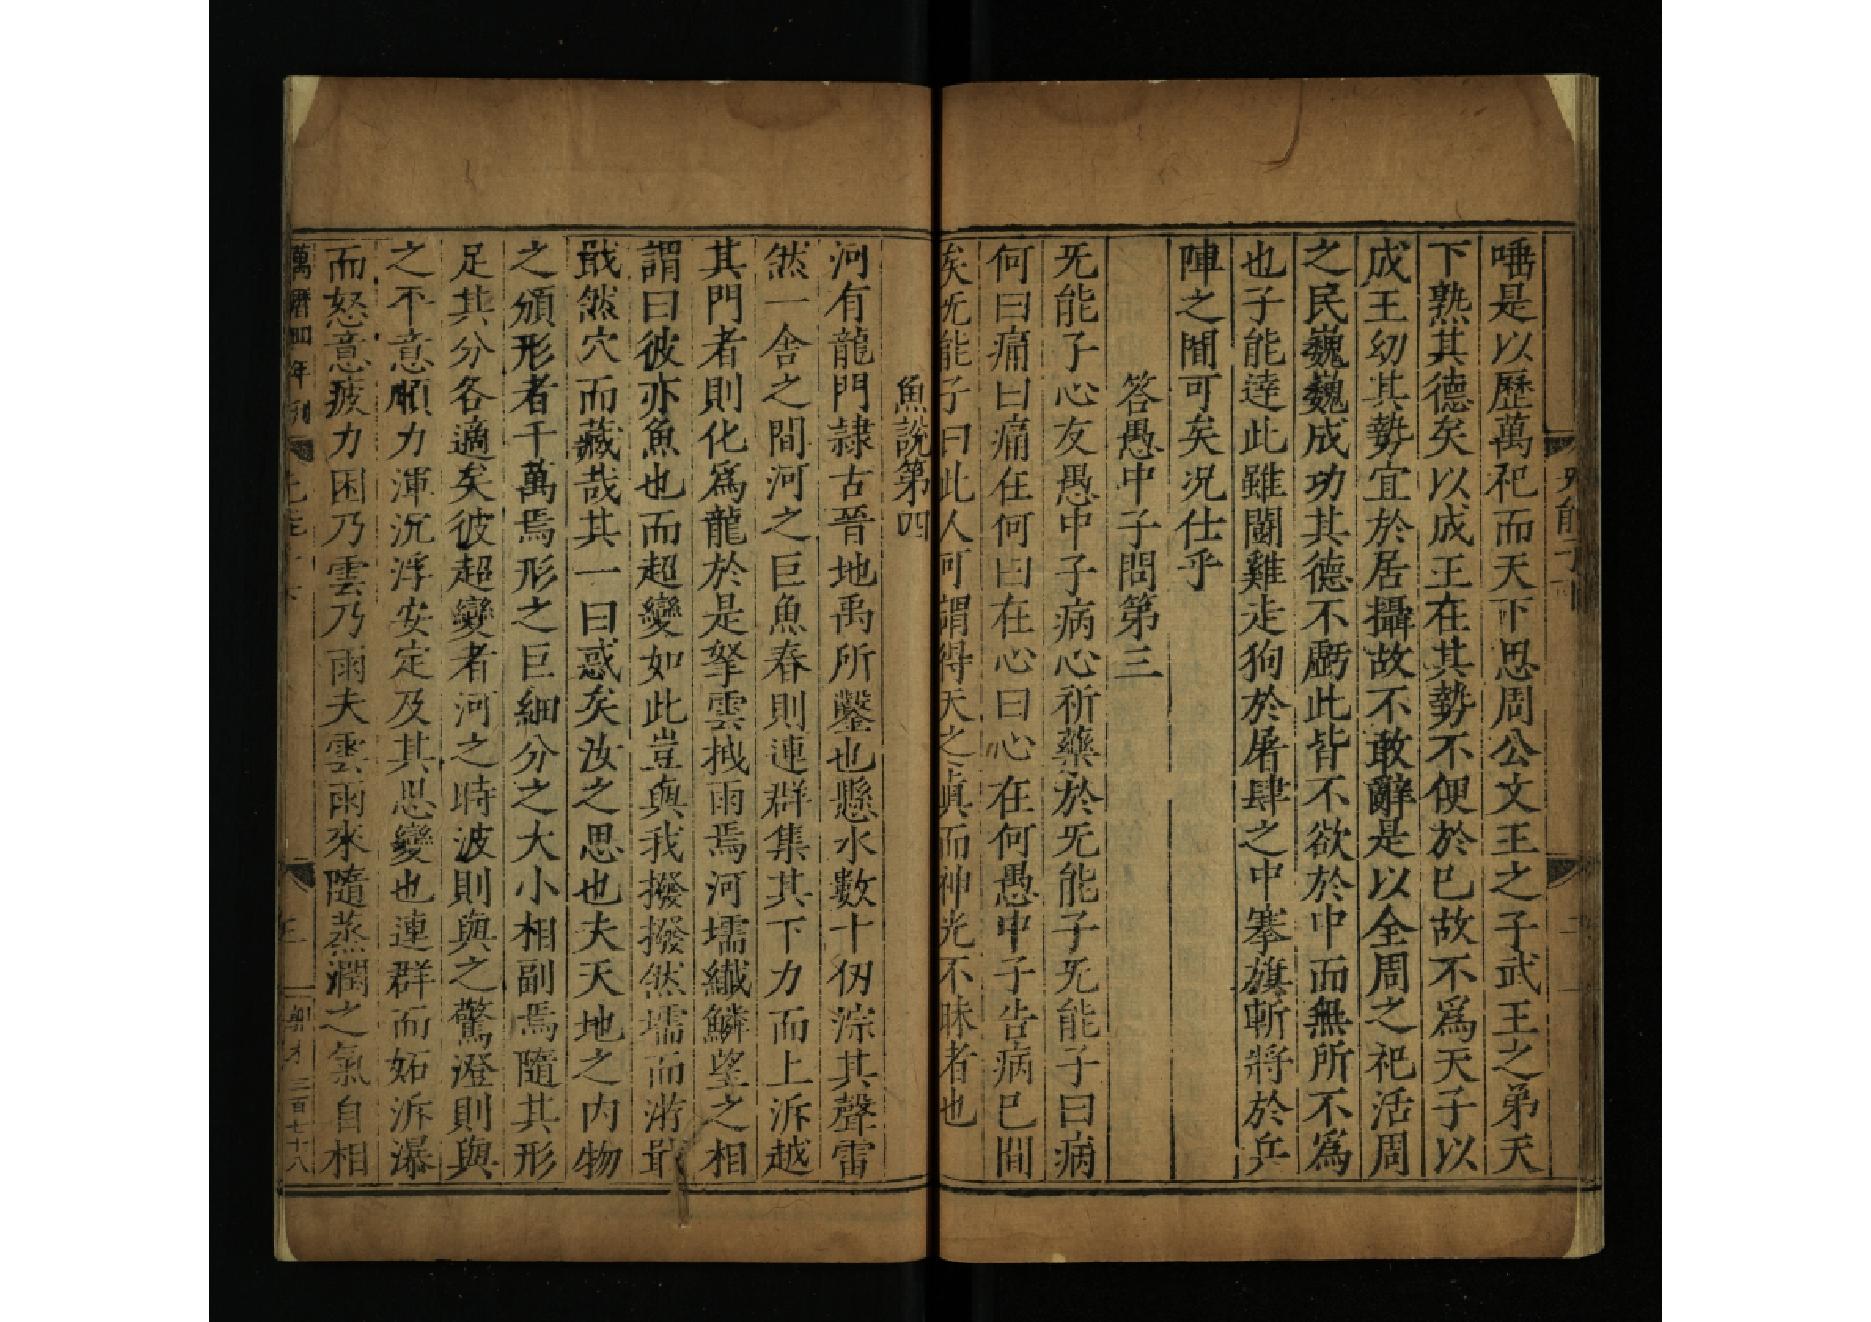 唾是以歷萬祀而天下思周公文王之子武王之弟天
下熟其德矣以成王在其勢不便於巳故不爲天子以
成王幼其勢宜於居攝故不敢辭是以全周之祀活周
之民巍巍成功其德不虧此皆不欲於中而無所不爲
也子能達此雖鬪雞走狗於屠肆之中搴旗斬將於兵
陣之間可矣况仕乎
答愚中子問第三
旡能子心友愚中子病心祈藥於旡能子旡能子曰病
何曰痛曰痛在何曰在心曰心在何愚中子告病巳間
矣旡能子曰此人可謂得天之眞而神光不昧者也
魚說第四
河有龍門隷古晉地禹所鑿也懸水數十仞淙其聲雷
然一舎之間河之巨魚春則連群集其下力而上泝越
其門者則化爲龍於是拏雲拽雨焉河壖纖鱗望之相
謂曰彼亦魚也而超變如此豈與我撥撥然壖而游戢
戢然穴而藏哉其一曰惑矣汝之思也夫天地之内物
之頒形者千萬焉形之巨細分之大小相副焉隨其形
足其分各適矣彼超變者河之時波則與之驚澄則與
之不意順力渾沉浮安定及其思變也連群而妬泝瀑
而怒意疲力困乃雲乃雨夫雲雨來隨蒸潤之氣自相
萬曆四年刊
三百七十八